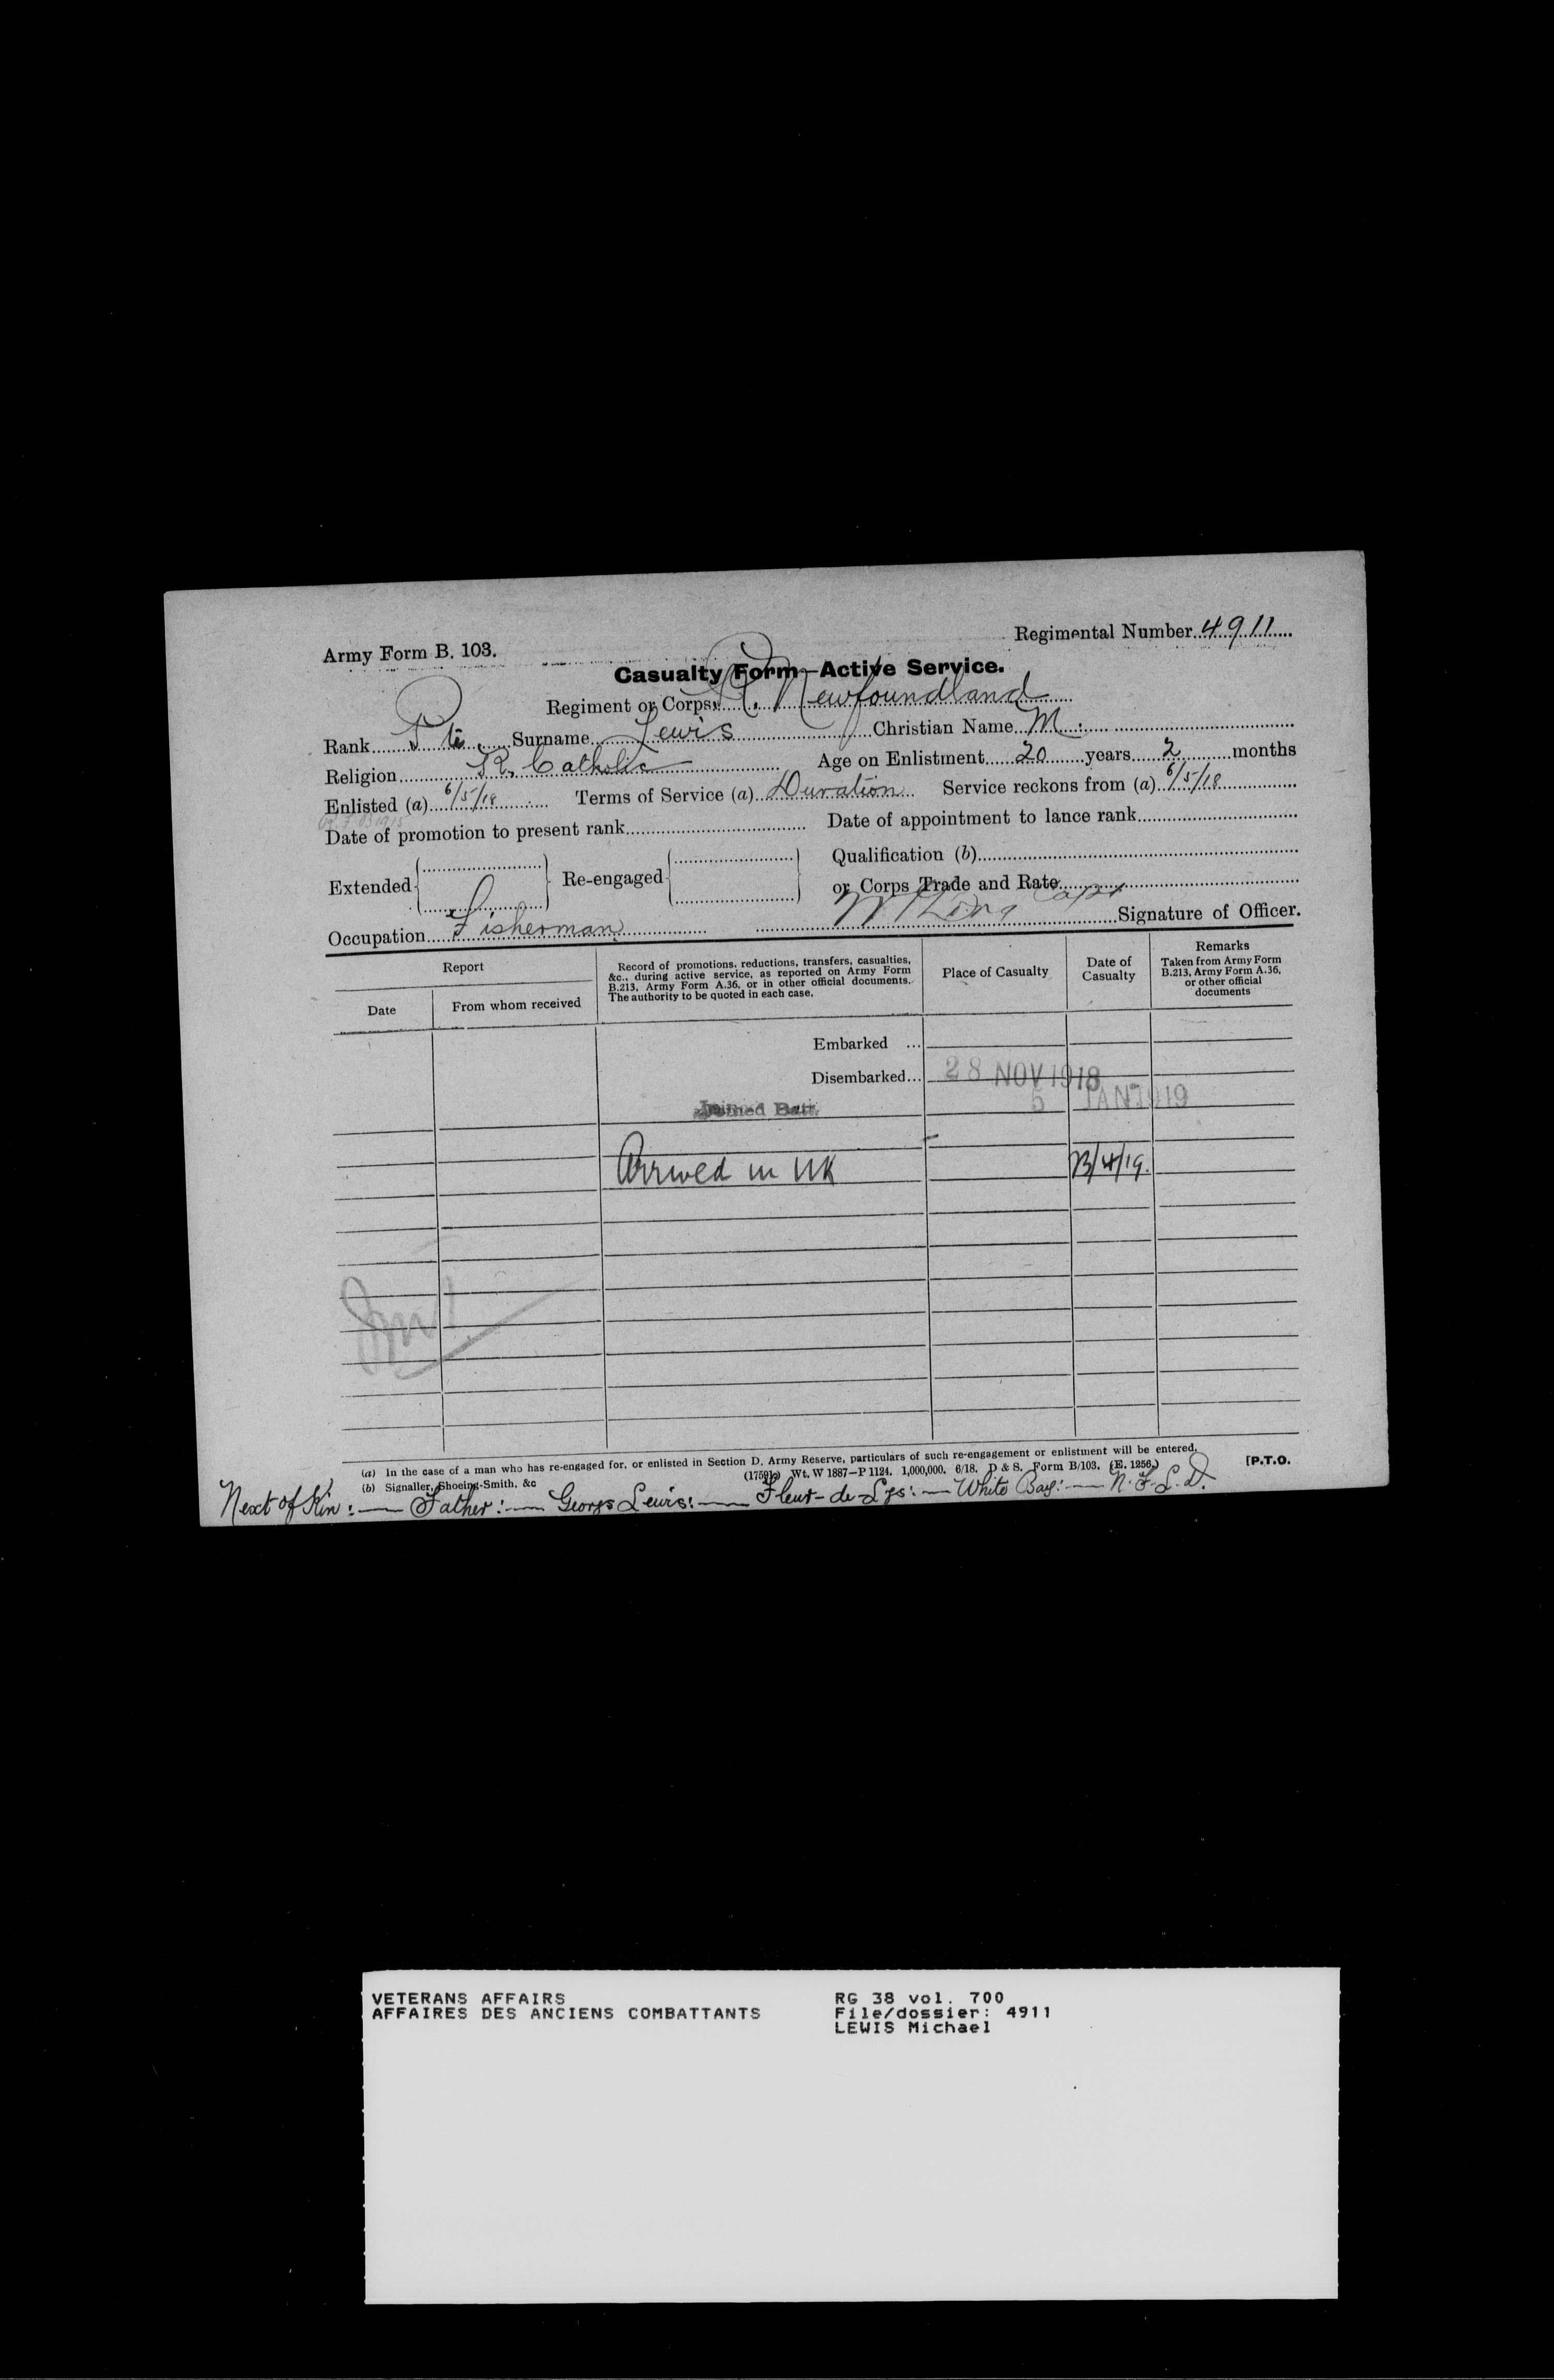 Regimental Number 4911
Army Form B. 103.
Casualty Form—Active Service.
Regiment or Corps R. Newfoundland
Rank Pte Surname Lewis Christian Name M.
Religion R. Catholic Age on Enlistment 20 years 2 months
Enlisted (a) 6/5/18 Terms of Service (a) Duration Service reckons from (a) 6/5/18
Date of promotion to present rank Date of appointment to lance rank
Extended Re-engaged Qualification (b)
or Corps Trade and Rate
Occupation Fisherman Capt Signature of Officer.
Report
Date From whom received
Record of promotions, reductions, transfers, casualties,
&c., during active service, as reported on Army Form
B.213, Army Form A.36, or in other official documents.
The authority to be quoted in each case.
Place of Casualty
Date of
Casualty
Remarks
Taken from Army Form
B.213, Army Form A.36,
or other official
documents
Embarked ...
Disembarked... 28 NOV 1918
Joined Batt. 5 JAN 1919
Arrived in UK 23/4/19.
(a) In the case of a man who has re-engaged for, or enlisted in Section D, Army Reserve, particulars of such re-engagement or enlistment will be entered.
(b) Signaller, Shoeing-Smith, &c (17591) Wt. W 1887—P 1124. 1,000,000. 6/18. D & S. Form B/103. (E. 1256.) [P.T.O.
Next of Kin:— Father:— George Lewis:— Fleur-de-Lys:— White Bay:— N.F.L.D.
VETERANS AFFAIRS RG 38 vol. 700
AFFAIRES DES ANCIENS COMBATTANTS File/dossier: 4911
LEWIS Michael